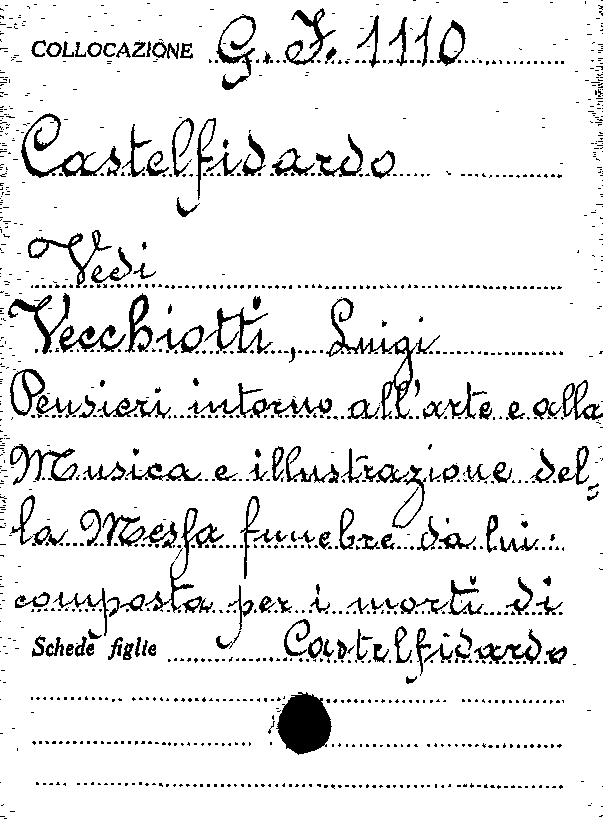 COLLOCAZIONE G. F. 1110
Castelfidardo
Vedi
Vecchiotti, Luigi
Pensieri intorno all'arte e alla
Musica e illustrazione del=
la Messa funebre da lui
composta per i morti di
Schede figlie Castelfidardo